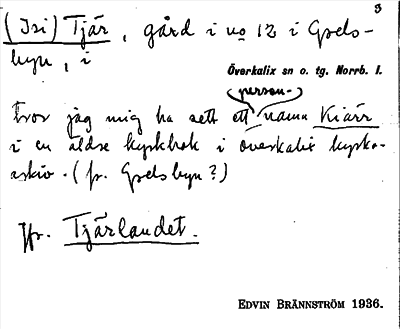 3
(Isi) Tjär, gård i no 12 i Grels-
byn, i
Överkalix sn o. tg. Norrb. l.
person-
Tror jag mig ha sett ett namn Kiärr
i en äldre kyrkbok i överkalix kyrko-
arkiv. (fr. Grelsbyn?)
Jfr. Tjärlandet.
EDVIN BRÄNNSTRÖM 1936.